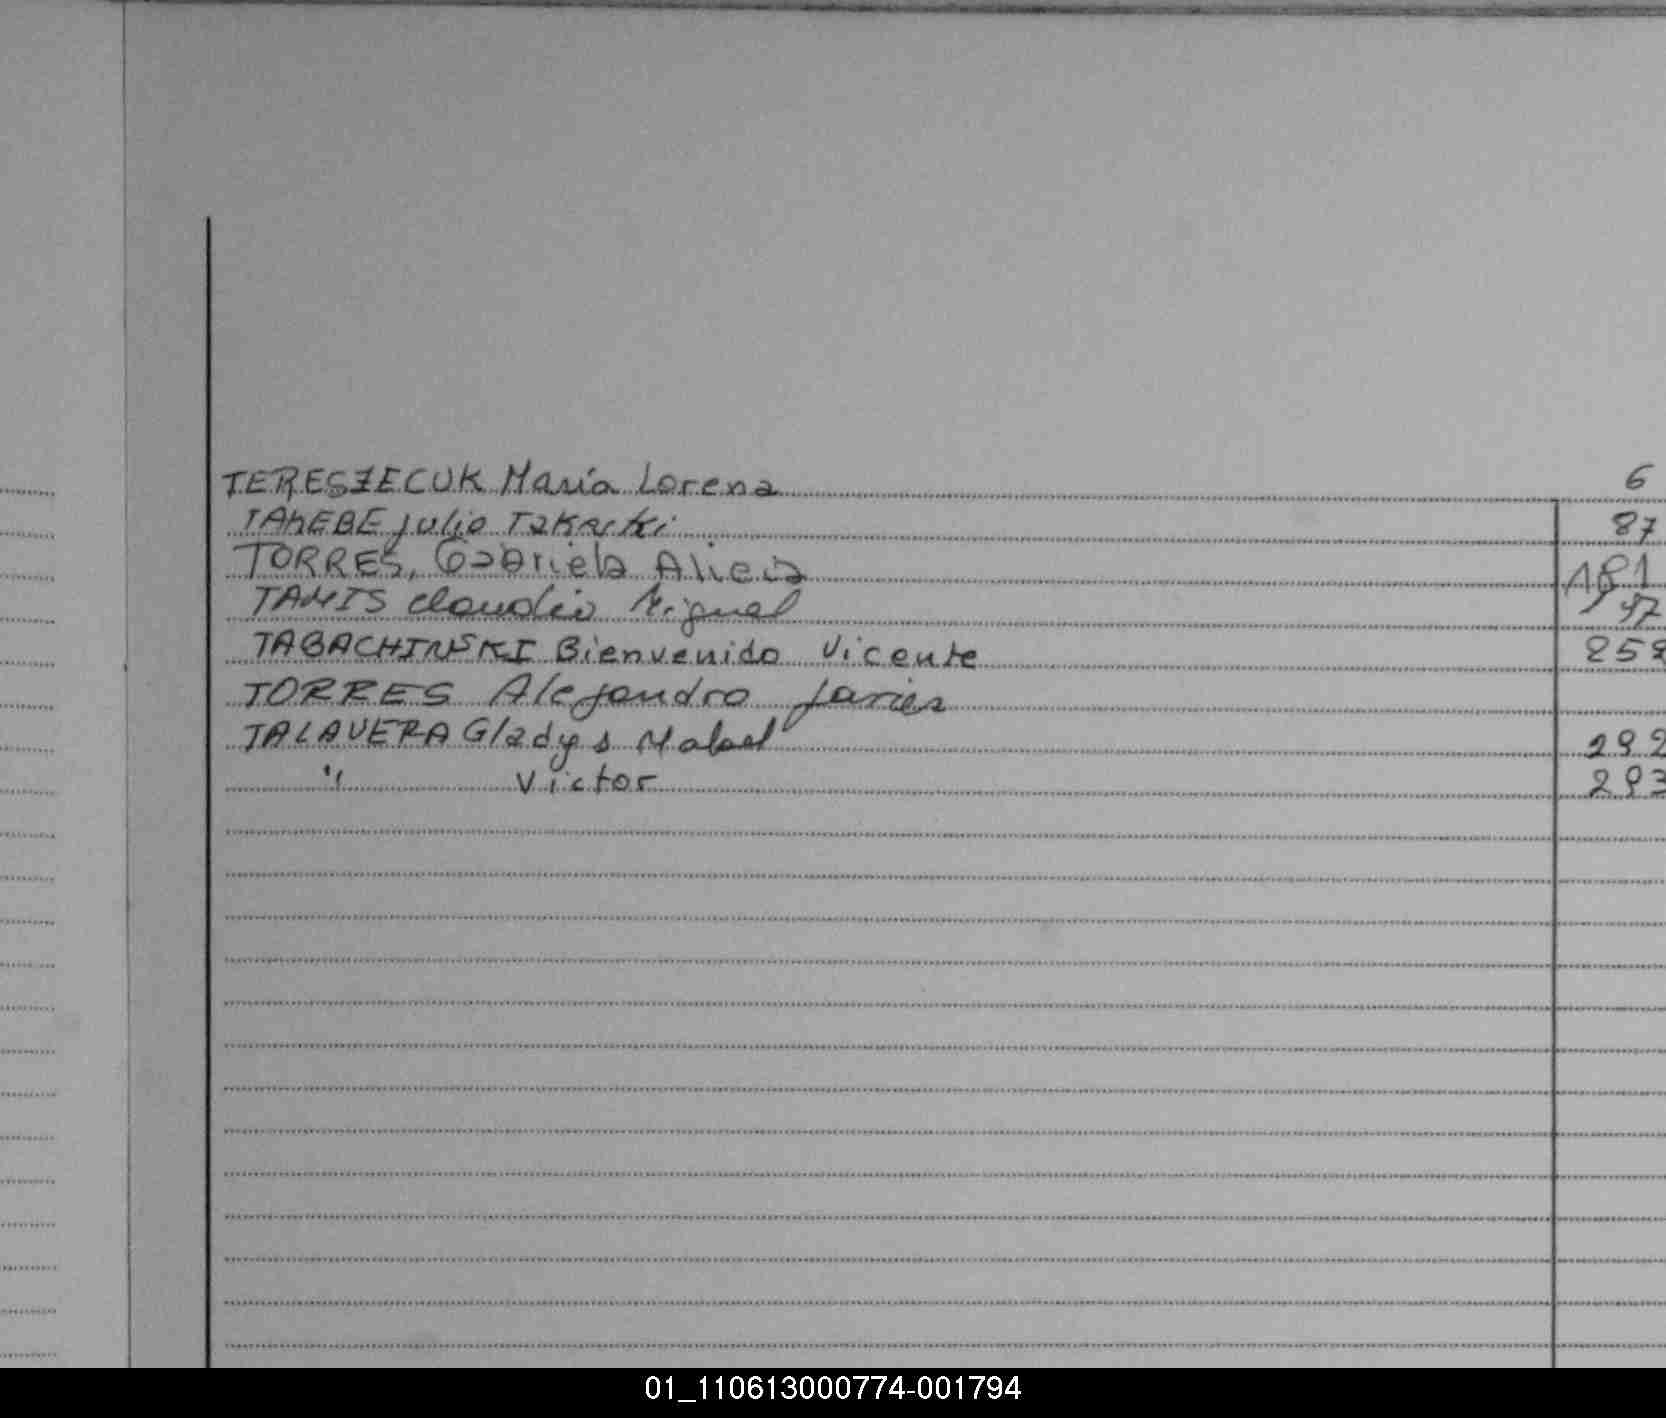 TERESZECUK María Lorena 6
TAKEBE Julio 87
TORRES, Gabriela Alicia 181
TAMIS Claudio Miguel 97
TABACHINSKI Bienvenido Vicente 258
TORRES Alejandro Javier
TALAVERA Gladys Mabel 292
" Victor 293
01_110613000774-001794